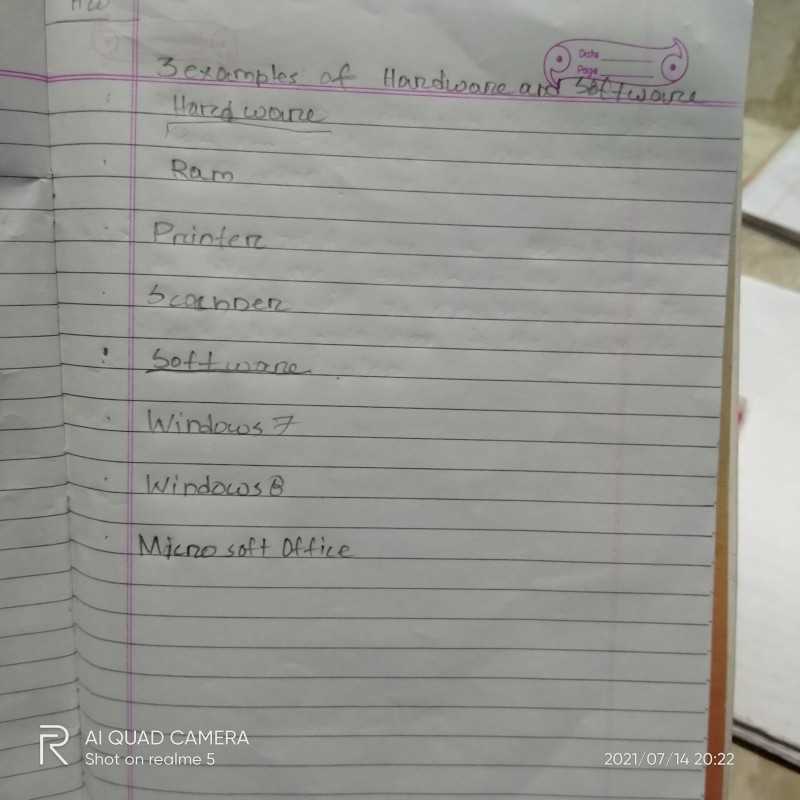 HW
Date
Page
3 examples of Hardware and Software
Hardware
Ram
Printer
Scanner
Software
Windows 7
Windows 8
Microsoft Office
AI QUAD CAMERA
Shot on realme 5
2021/07/14 20:22